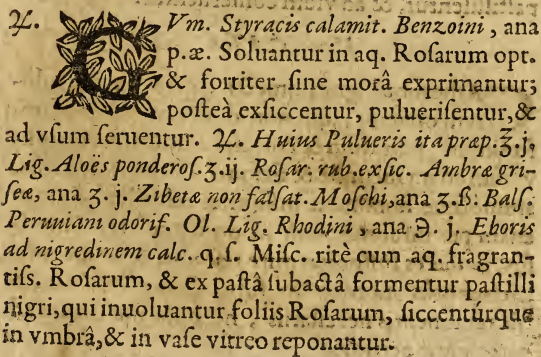 ♃. GVm. Styracis calamit. Benzoini, ana
p.æ. Soluantur in aq. Roſarum opt.
& fortiter ſine morâ exprimantur;
poſteà exſiccentur, pulueriſentur,&
ad vſum ſeruentur. ♃. Huius Pulueris ita præp.℥.j.
Lig. Aloës ponderoſ.ʒ.ij. Roſar. rub.exſic. Ambræ gri-
ſeæ, ana ʒ. j. Zibetæ non falſat. Moſchi,ana ʒ.ß: Balſ.
Peruuiani odorif. Ol. Lig. Rhodini, ana ℈. j. Eboris
ad nigredinem calc. q. ſ. Miſc. ritè cum aq. fragran-
tiſs. Roſarum, & ex paſtâ ſubactâ formentur paſtilli
nigri,qui inuoluantur foliis Roſarum, ſiccentúrque
in vmbrâ,& in vaſe vitreo reponantur.